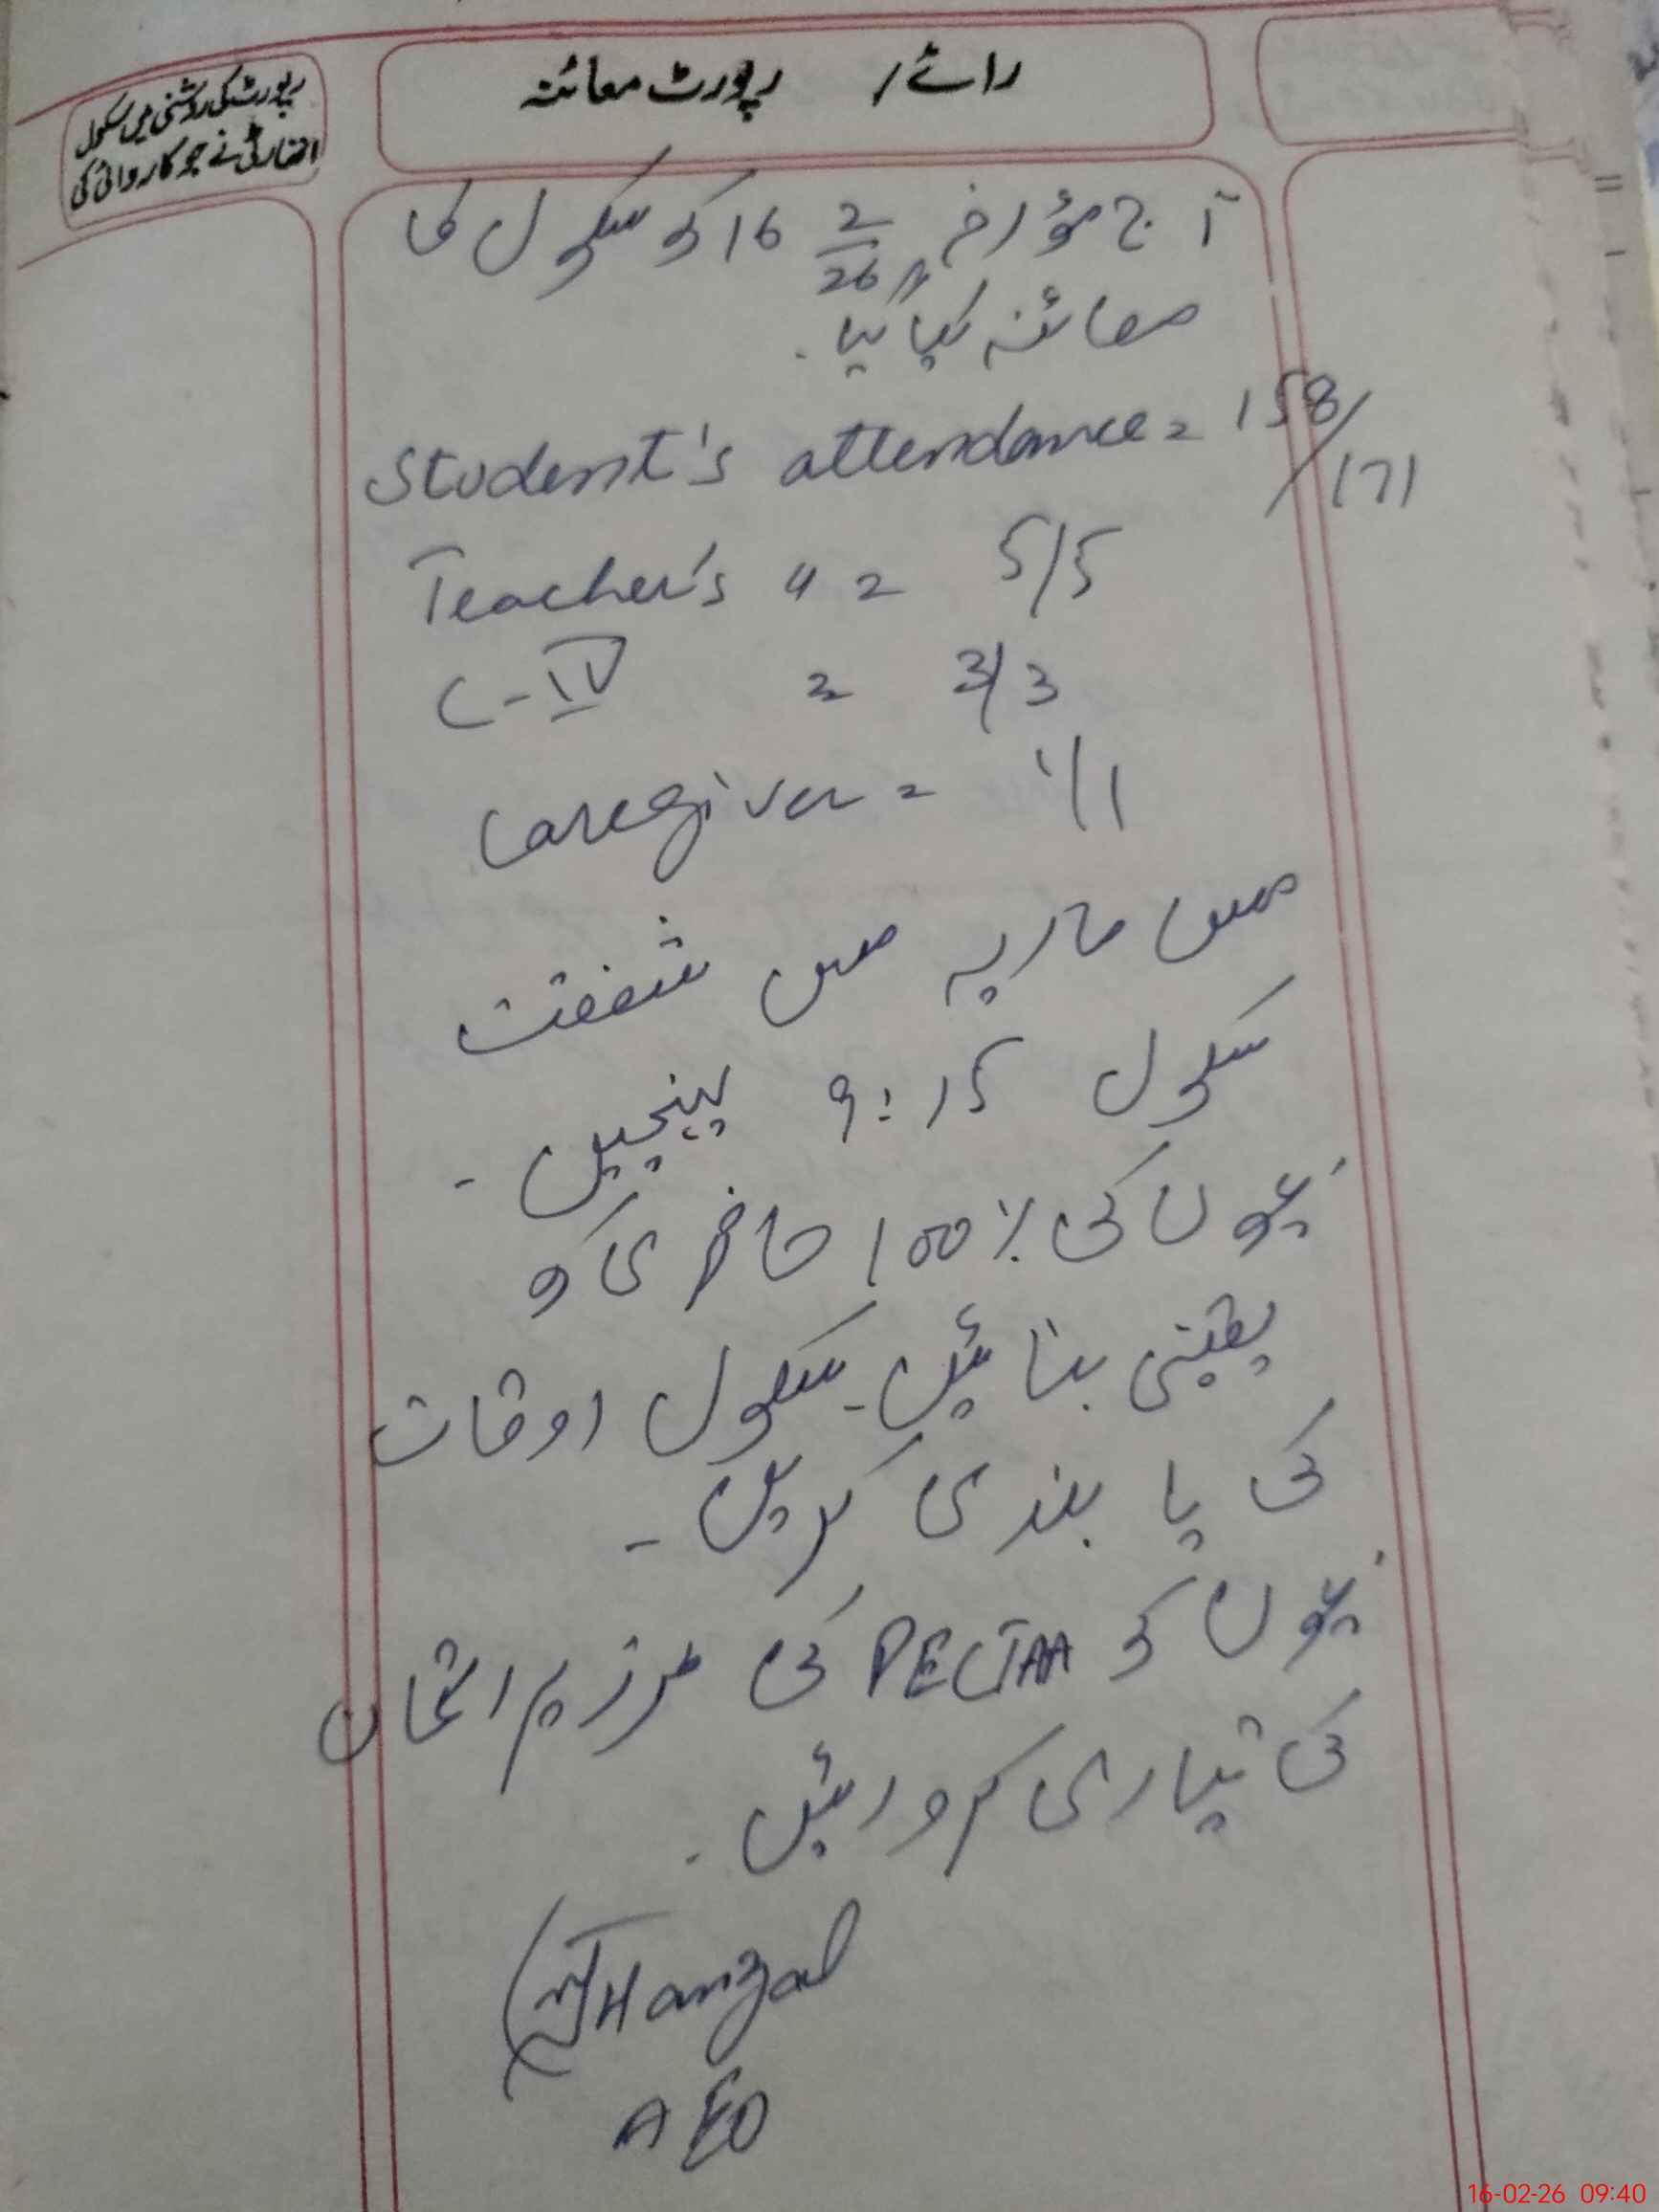 رائے / رپورٹ معائنہ
رپورٹ کی روشنی میں سکول
اتھارٹی نے جو کاروائی کی
آج مؤرخہ 16 2/26 کو سکول کا
معائنہ کیا گیا.
Student's attendance = 158/171
Teacher's " = 5/5
C-IV = 3/3
Caregiver = 1/1
مس ماریہ مس شفقت
سکول 9:15 پہنچیں ۔
بچوں کی 100% حاضری کو
یقینی بنائیں۔ سکول اوقات
کی پابندی کریں ۔
بچوں کو PECTAA کی طرز پر امتحان
کی تیاری کروائیں .
AEO
16-02-26 09:40